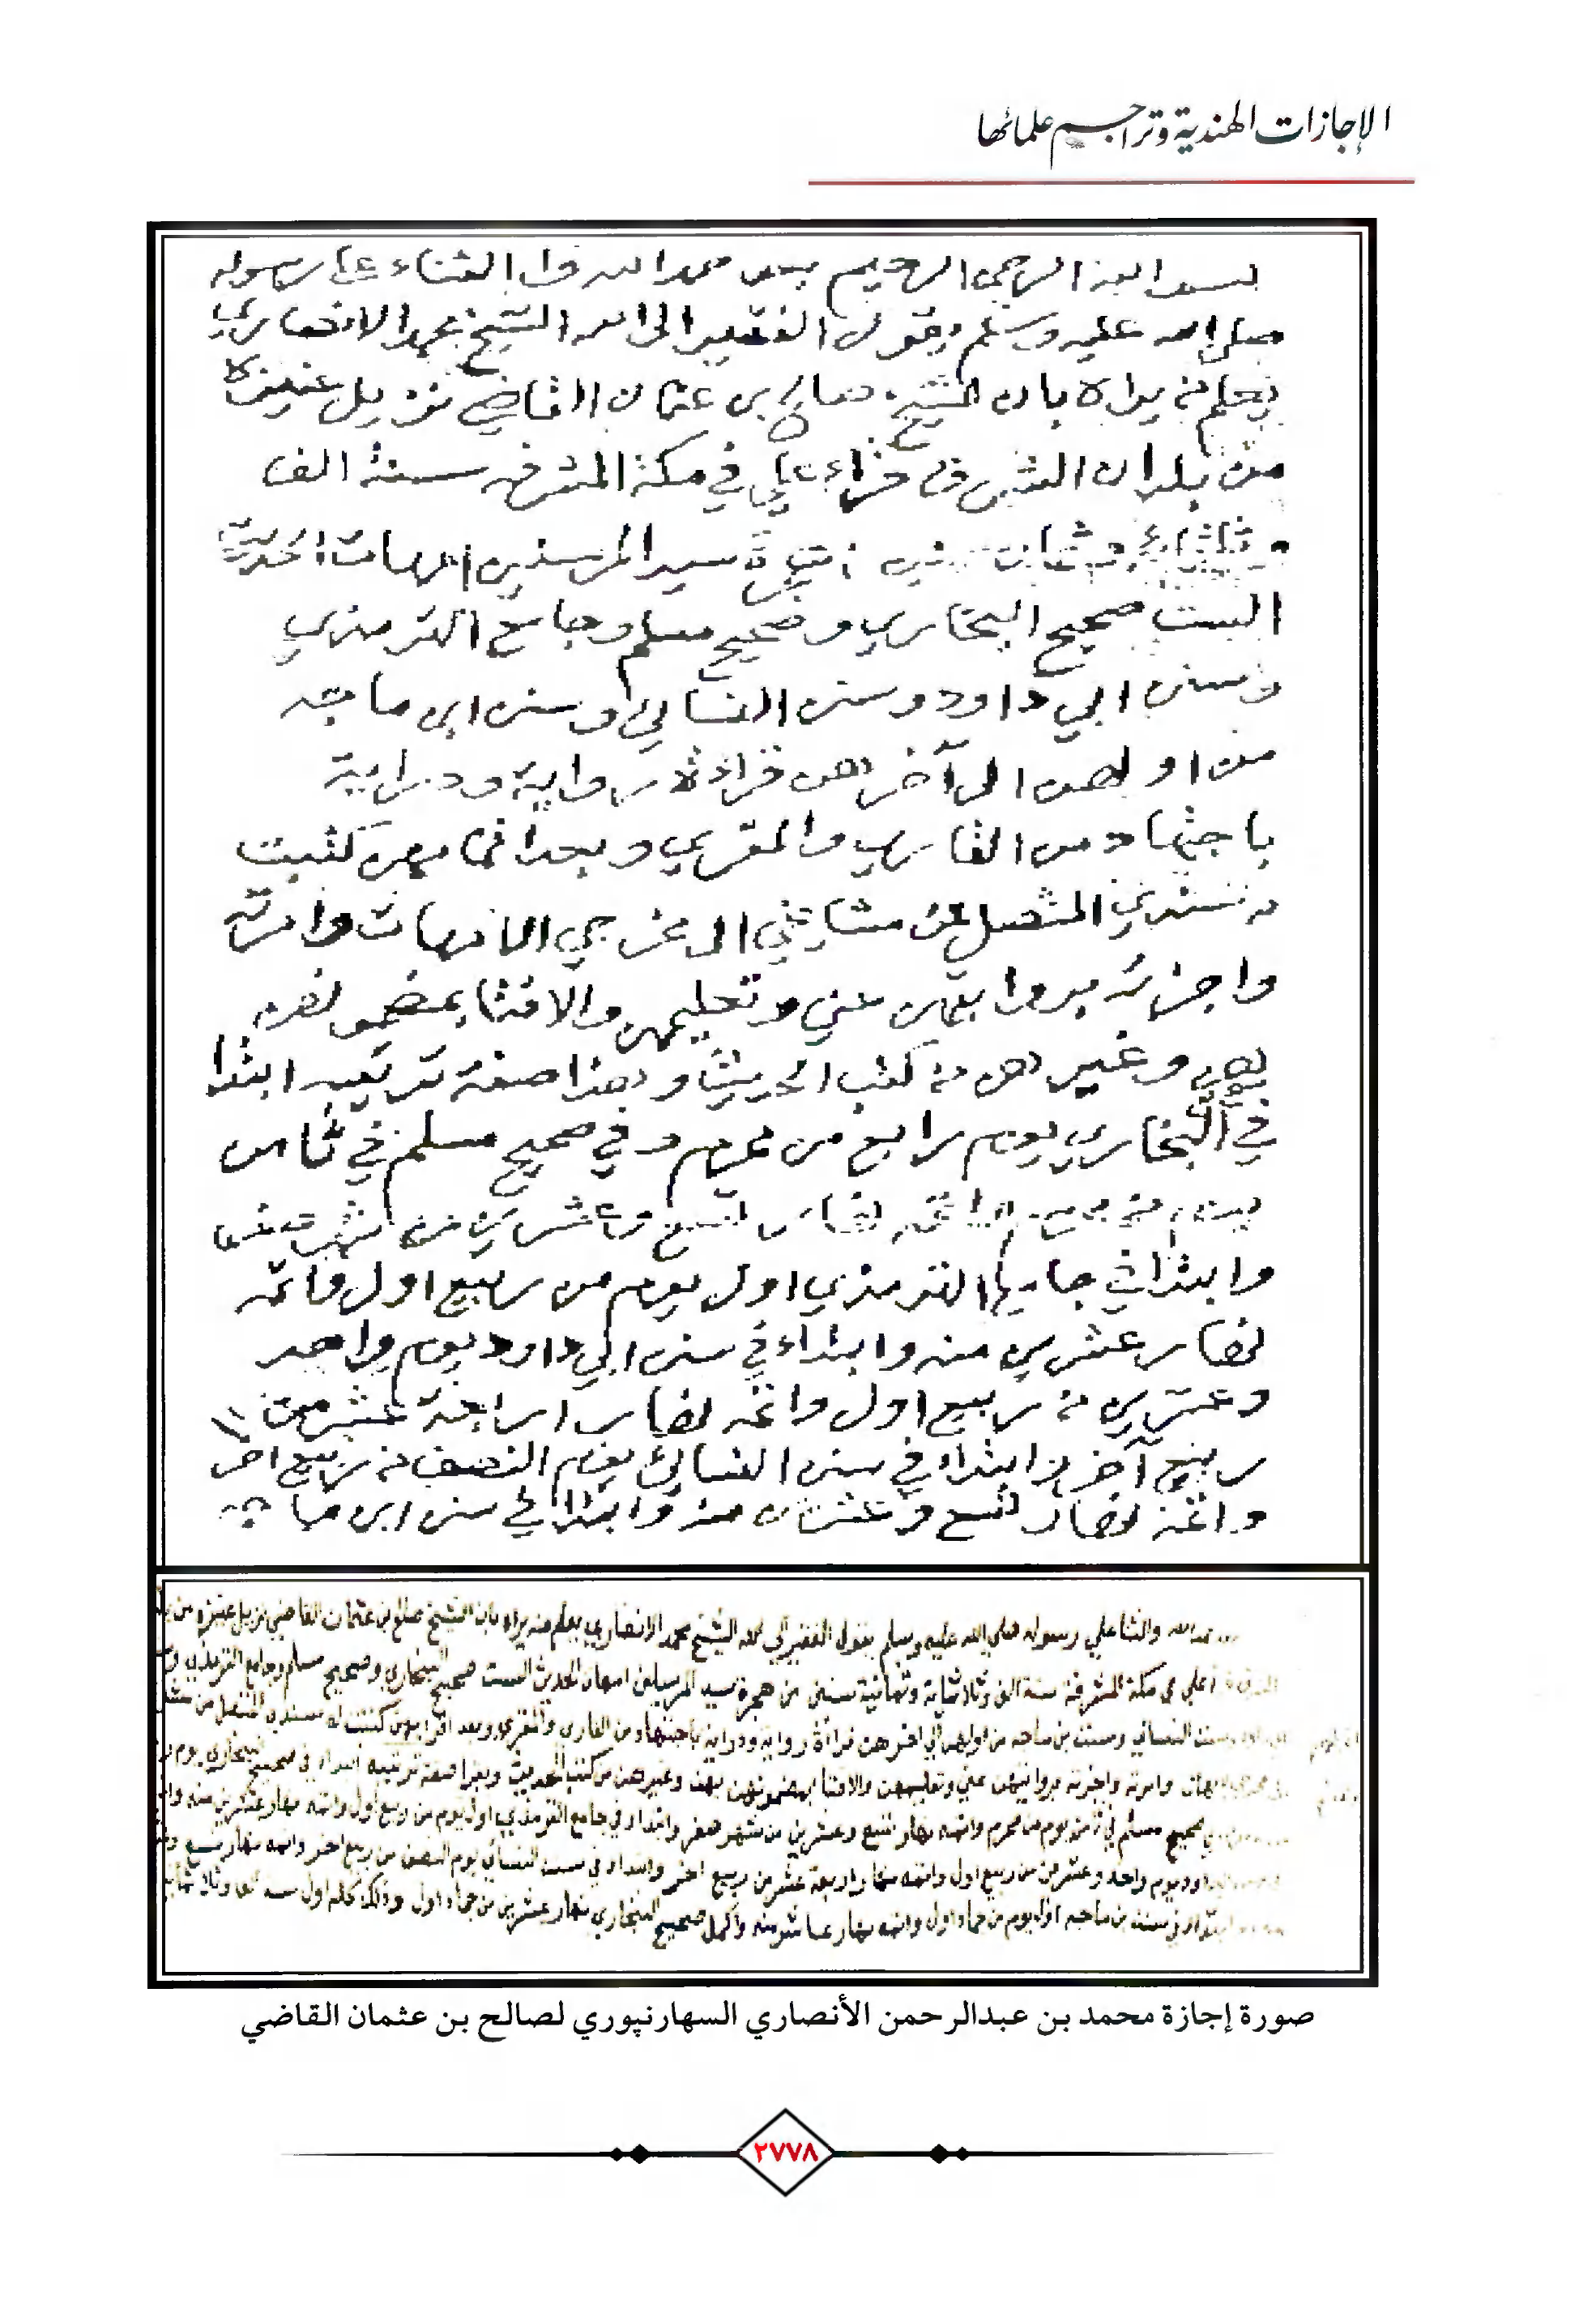 الإجازات الهندية وتراجم علمائها
بسم الله الرحمن الرحيم بعد حمد الله والثناء على رسوله
صلى الله عليه وسلم يقول الفقير الى الله الشيخ محمد الانصاري
يعلم من يراه بان الشيخ صالح بن عثمان القاضي نزيل عنيزة
من بلدان الشرق قراء علي في مكة المشرفه سنة الف
وثلثمائة وثمانية سنين هجرة سيد المرسلين امهات الحديث
الست صحيح البخاري وصحيح مسلم وجامع الترمذي
وسنن ابي داود وسنن النسائي وسنن ابن ماجه
من اولهن الى آخرهن قراءة رواية ودراية
باجتهاد من القاري والمقري وبعد اتمامهن كتبت
له سندي المتصل من مشايخي الى مخرجي الامهات وامرته
واجزته بروايتهن عني وتعليمهن والافتا بمضمونهن
بهن وغيرهن من كتب الحديث وهذا صفة ترتيبه ابتدا
في البخاري يوم رابع من محرم وفي صحيح مسلم في ثامن
يوم من محرم واتمه نهار تسع وعشرين من شهر صفر
وابتدا في جامع الترمذي اول يوم من ربيع اول واتمه
نهار عشرين منه وابتداء في سنن ابي داود يوم واحد
وعشرين من ربيع اول واتمه نهار اربعة عشر من
ربيع آخر وابتداء في سنن النسائي يوم النصف من ربيع اخر
واتمه نهار تسع وعشرين منه وابتدا في سنن ابن ماجه
حمد الله والثنا علي رسوله صلي الله عليه وسلم يقول الفقير الي الله الشيخ محمد الانصاري يعلم من يراه بان الشيخ صالح بن عثمان القاضي نزيل عنيزه من
علي في مكة المشرفة سنة الف وثلاثماية وثمانية سنين من هجرة سيد المرسلين امهات الحديث الست صحيح البخاري وصحيح مسلم وجامع الترمذي
وسنن النسائي وسنن بن ماجه من اولهن الي اخرهن قراءة رواية ودراية باجتهاد من القاري والمقري وبعد اقرايهن كتبت له سندي المتصل من
وامرته واجزته بروايتهن عني وتعليمهن والافتا بمضمونهن بهن وغيرهن من كتب الحديث وهذا صفة ترتيبه ابتداء في صحيح البخاري يوم
صحيح مسلم في ثامن يوم من محرم واتمه نهار تسع وعشرين من شهر صفر وابتداء في جامع الترمذي اول يوم من ربيع اول واتمه نهار عشرين منه
داود يوم واحد وعشرين من ربيع اول واتمه نهار اربعة عشر من ربيع اخر وابتداء في سنن النسائي يوم النصف من ربيع اخر واتمه نهار تسع
ابتداء في سنن بن ماجه اول يوم من جماد اول واتمه نهار عاشر منه واكمل صحيح البخاري نهار عشرين من جماد اول وذلك كله اول سنة
صورة إجازة محمد بن عبدالرحمن الأنصاري السهارنپوري لصالح بن عثمان القاضي
٢٧٧٨